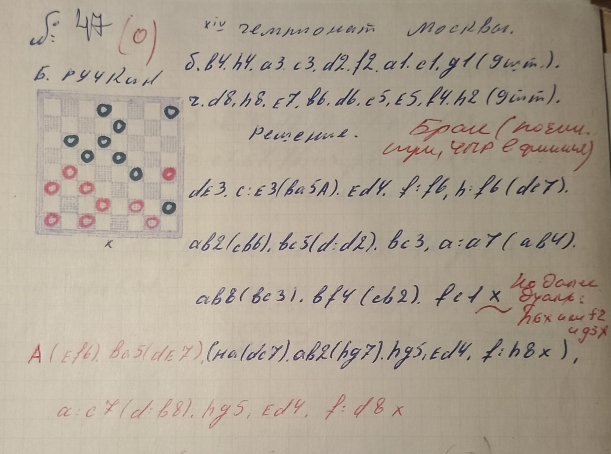 № 47 (0)
XIV чемпионат Москвы.
Б. Ручкин
б. b4. h4. a3. c3. d2. f2. a1. c1. g1 (9шт.).
ч. d8. h8. e7. b6. d6. c5. e5. f4. h2 (9шт).
Решение.
Брак (
в финале)
dE3. c:E3(ba5A). Ed4. f:f6, h:f6 (dc7).
ab2(cb6). bc5(d:d2). bc3, a:a7 (ab4).
ab8(bc3). bf4 (cb2). fc1 x
Но далее
дуаль:
A (Ef6). ba5(dE7). (на(dc7). ab2(hg7). hg5, Ed4, f:h8x),
a:c7(d:b8). hg5, Ed4, f:d8 x
x